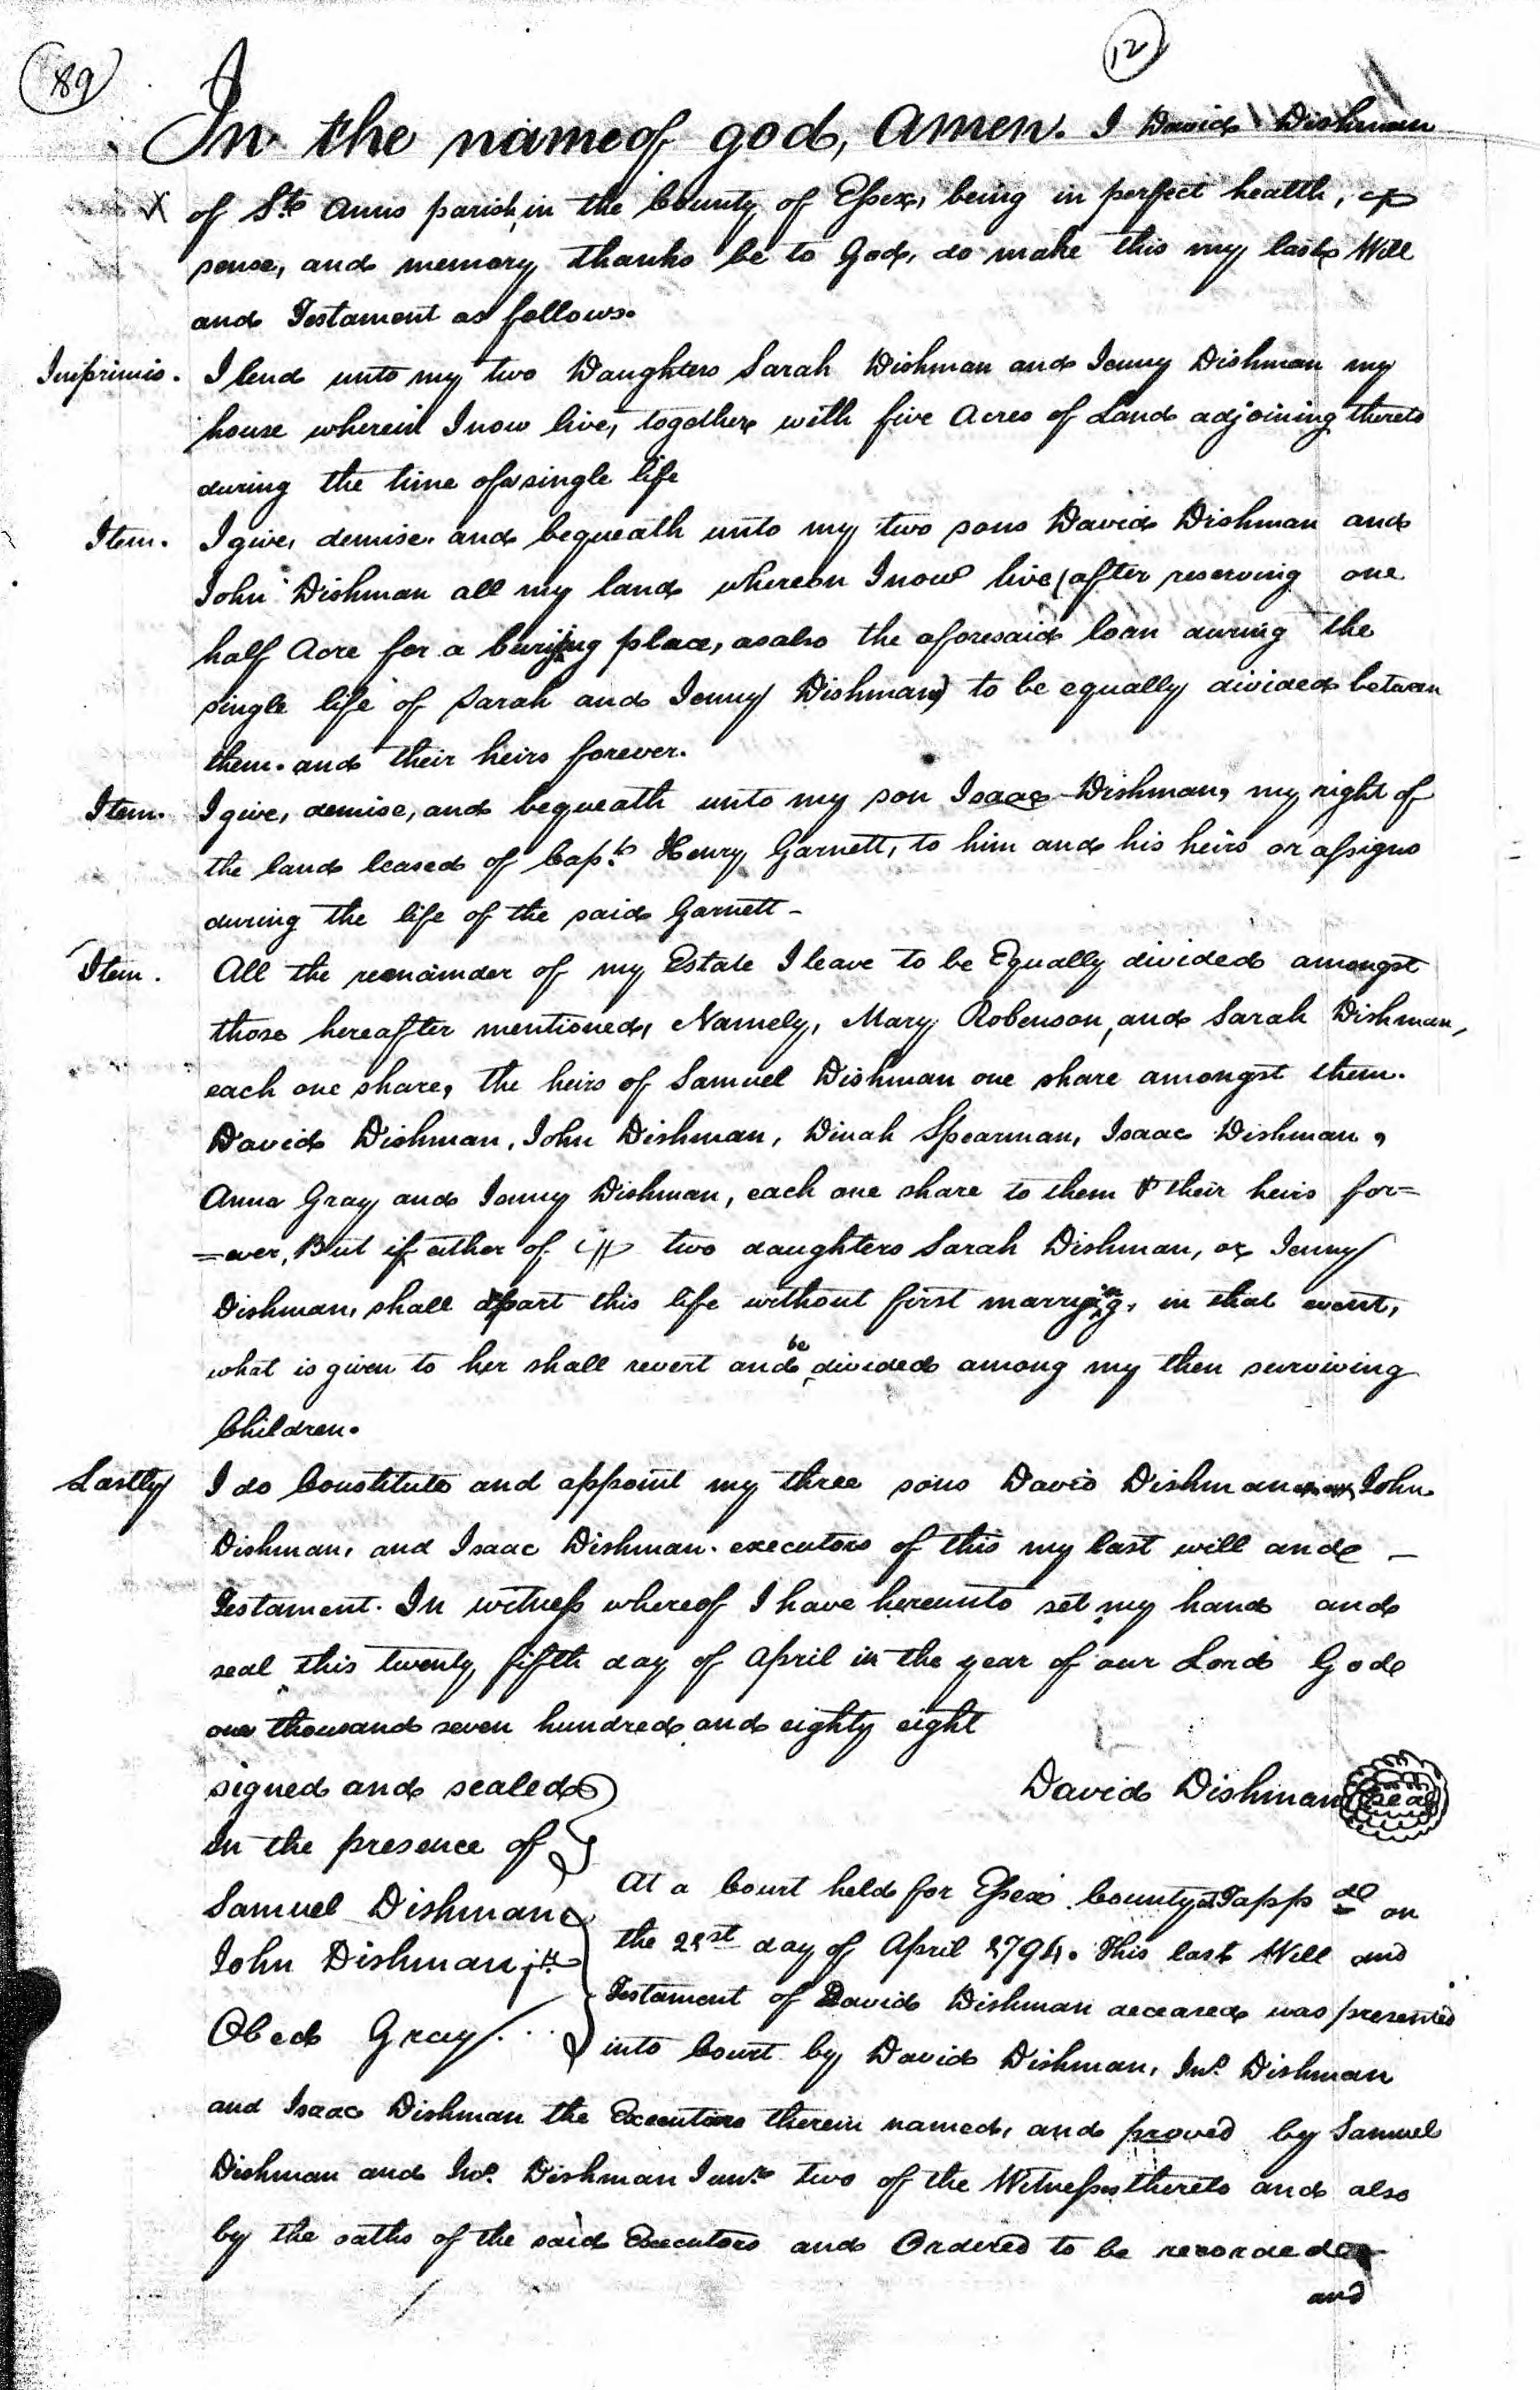 89
12
In the name of god, Amen. I David Dishman
X of Ste Anns parish, in the County of Essex, being in perfect health,
sense, and memory thanks be to God, do make this my last Will
and Testament as follows.
Imprimis. I lend unto my two Daughters Sarah Dishman and Jenny Dishman my
house wherein I now live, together with five Acres of Land adjoining thereto
during the time of single life
Item. I give, demise, and bequeath unto my two sons David Dishman and
John Dishman all my land whereon I now live (after reserving one
half Acre for a burying place, as also the aforesaid loan during the
single life of Sarah and Jenny Dishman) to be equally divided between
them. and their heirs forever.
Item. I give, demise, and bequeath unto my son Isaac Dishman, my right of
the land leased of Capt. Henry Garnett, to him and his heirs or assigns
during the life of the said Garnett -
Item. All the remainder of my Estate I leave to be Equally divided amongst
those hereafter mentioned, Namely, Mary Robenson, and Sarah Dishman,
each one share, the heirs of Samuel Dishman one share amongst them.
David Dishman, John Dishman, Dinah Spearman, Isaac Dishman,
Anna Gray and Jenny Dishman, each one share to them & their heirs for=
=ever, But if either of two daughters Sarah Dishman, or Jenny
Dishman, shall depart this life without first marrying, in that event,
what is given to her shall revert and be divided among my then surviving
Children.
Lastly I do Constitute and appoint my three sons David Dishman John
Dishman, and Isaac Dishman. executors of this my last will and -
Testament. In witness whereof I have hereunto set my hand and
seal this twenty fifth day of April in the year of our Lord God
one thousand seven hundred and eighty eight
signed and sealed
David Dishman Seal
in the presence of
Samuel Dishman
John Dishman jr.
Obed Gray
At a Court held for Essex County at Tappde on
the 21st day of April 1794. This last Will and
Testament of David Dishman deceased was presented
into Court by David Dishman, Jno. Dishman
and Isaac Dishman the Executors therein named, and proved by Samuel
Dishman and Jno. Dishman Junr. two of the Witnesses thereto and also
by the oaths of the said Executors and Ordered to be recorded
and